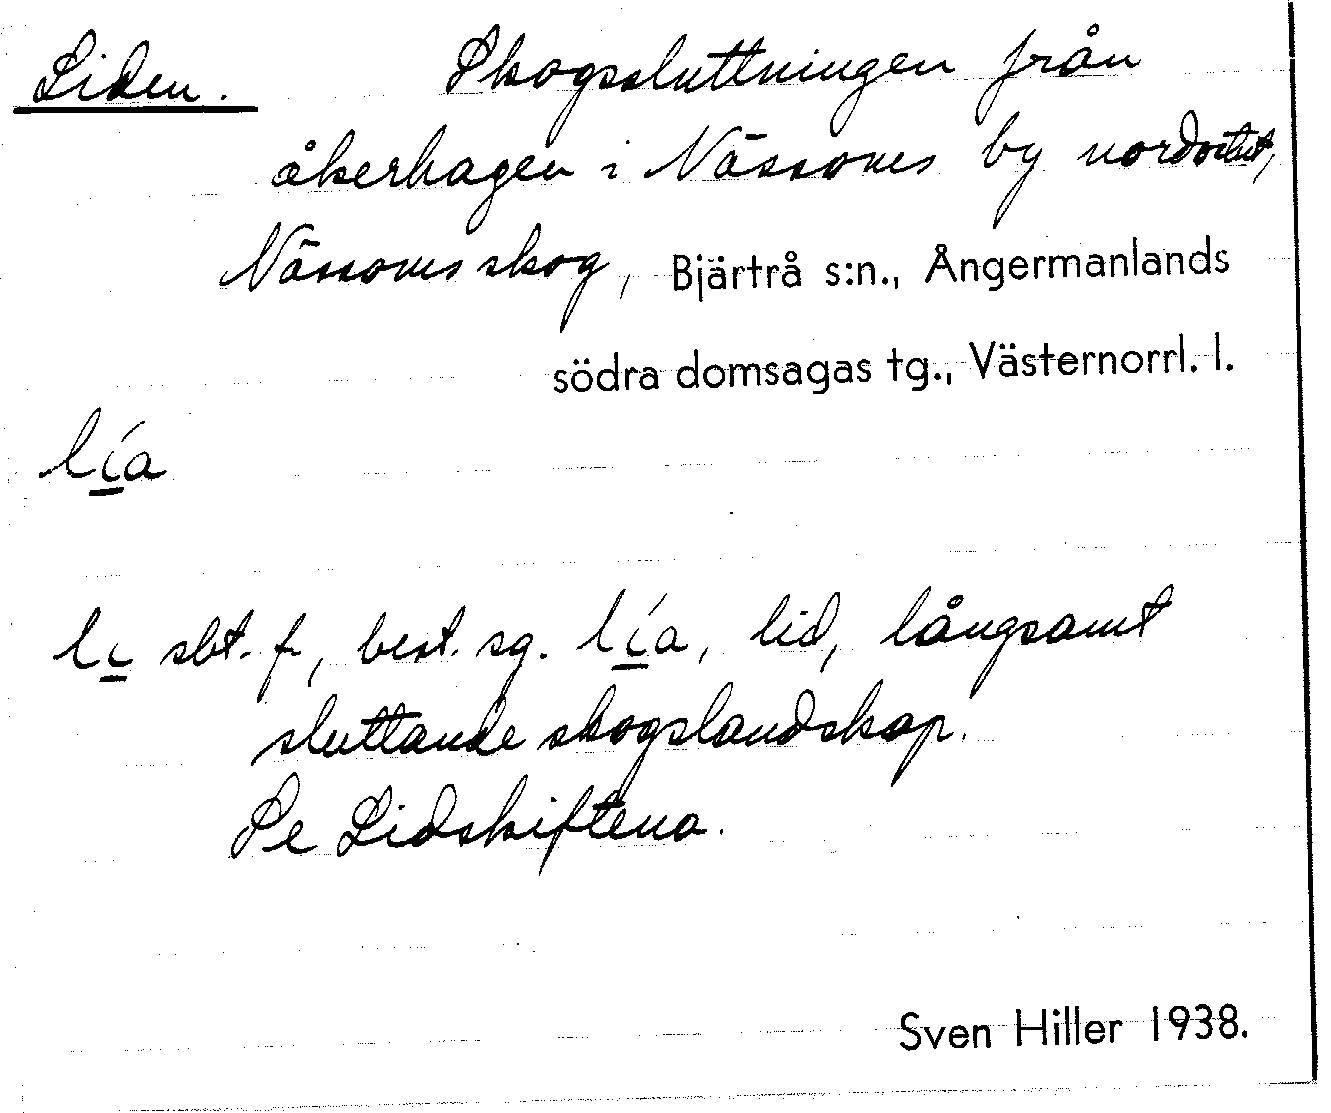 Liden. Skogssluttningen från
åkerhagen i Nässoms by nordost ut,
Nässoms skog, Bjärtrå s:n., Ångermanlands
södra domsagas tg., Västernorrl. l.
lía
li sbt. f, best. sg. lía, lid, långsamt
sluttande skogslandskap.
Se Lidskiftena.
Sven Hiller 1938.